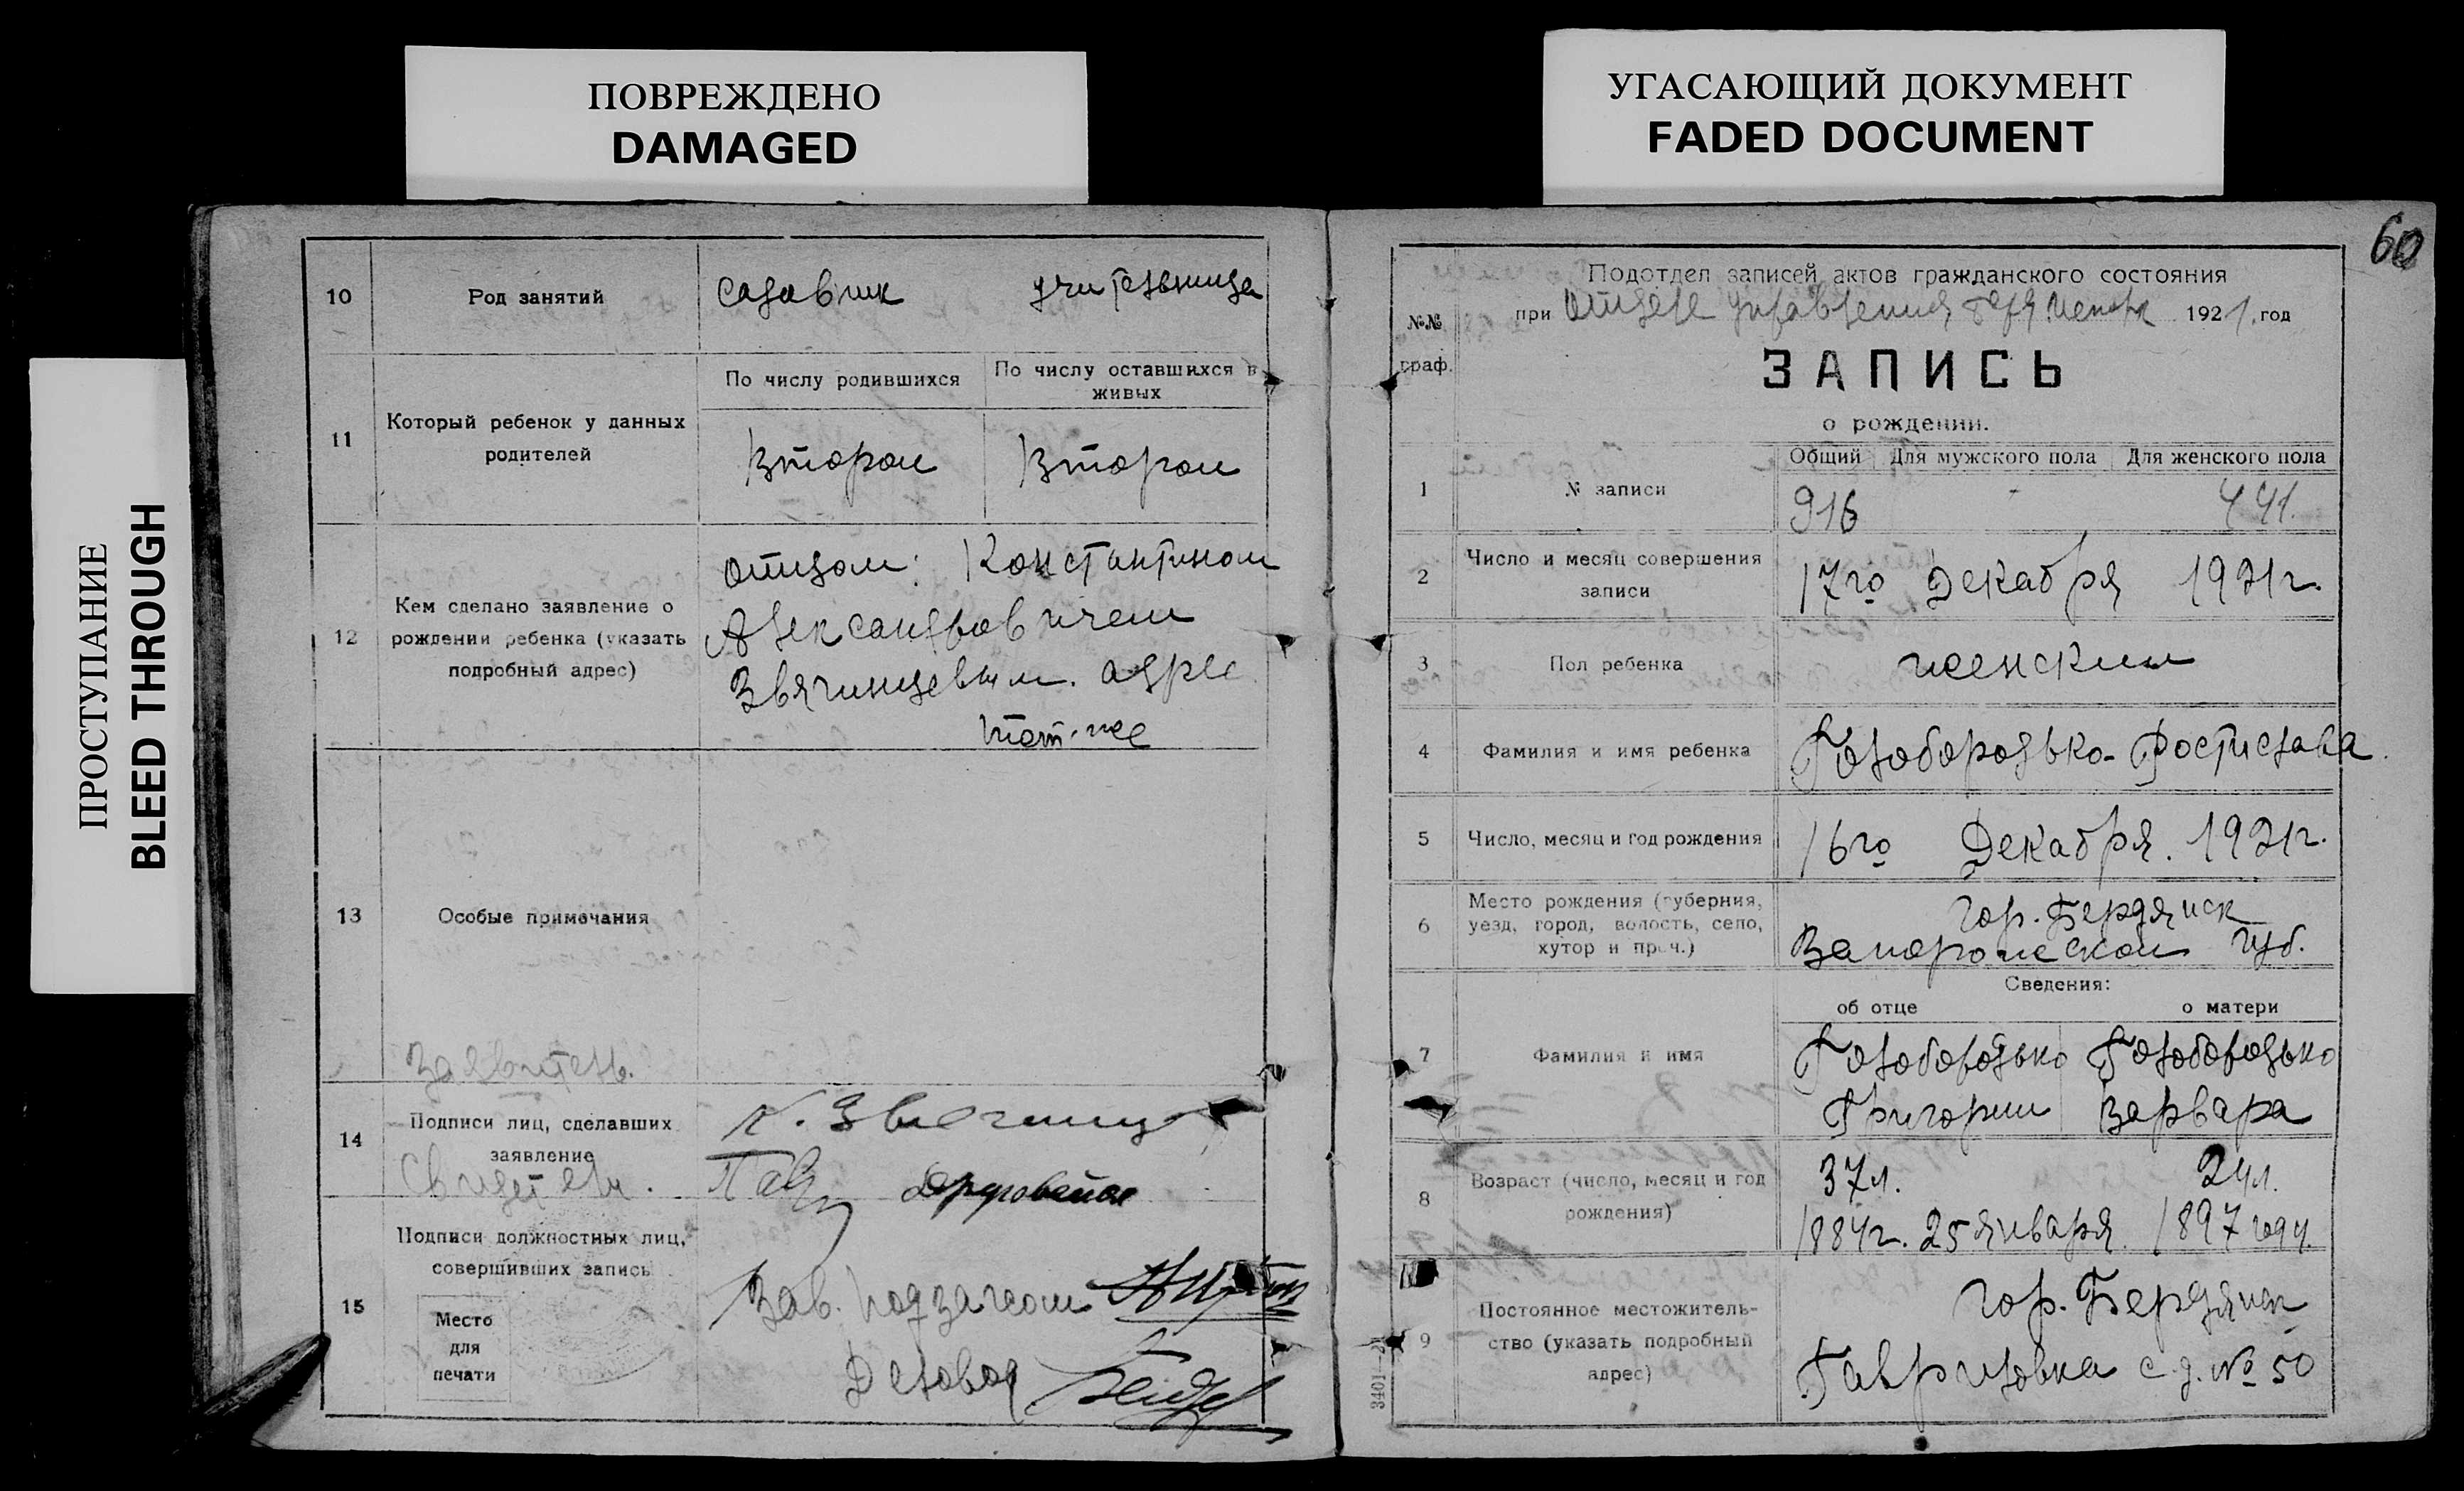 ПОВРЕЖДЕНО
DAMAGED
УГАСАЮЩИЙ ДОКУМЕНТ
FADED DOCUMENT
ПРОСТУПАНИЕ
BLEED THROUGH
10 Род занятий садовник учительница
11 Который ребенок у данных родителей
По числу родившихся По числу оставшихся в живых
Второй Второй
12 Кем сделано заявление о
рождении ребенка (указать
подробный адрес)
отцом: Константином
Александровичем
Звягинцевым. адрес
тот-же
13 Особые примечания
Заявитель.
14 Подписи лиц, сделавших
заявление
К. Звягинцев
Свидетели.
15 Подписи должностных лиц,
совершивших запись
Место
для
печати
Зав. подзагсом
Деловод
60
№№
граф.
Подотдел записей актов гражданского состояния
при Отделе Управления 1921. год
ЗАПИСЬ
о рождении.
Общий Для мужского пола Для женского пола
1 № записи 916 - 441.
2 Число и месяц совершения
записи
17го Декабря 1921г.
3 Пол ребенка женский
4 Фамилия и имя ребенка Голобородько-Ростислава.
5 Число, месяц и год рождения 16го Декабря. 1921г.
6 Место рождения (губерния,
уезд, город, волость, село,
хутор и проч.)
гор. Бердянск
Запорожской губ.
Сведения:
об отце о матери
7 Фамилия и имя
Голобородько Голобородько
Григорий Варвара
8 Возраст (число, месяц и год
рождения)
37л. 24л.
1884г. 25 января. 1897 году.
9 Постоянное местожитель-
ство (указать подробный
адрес)
гор. Бердянск
Гавриловка с.д. № 50